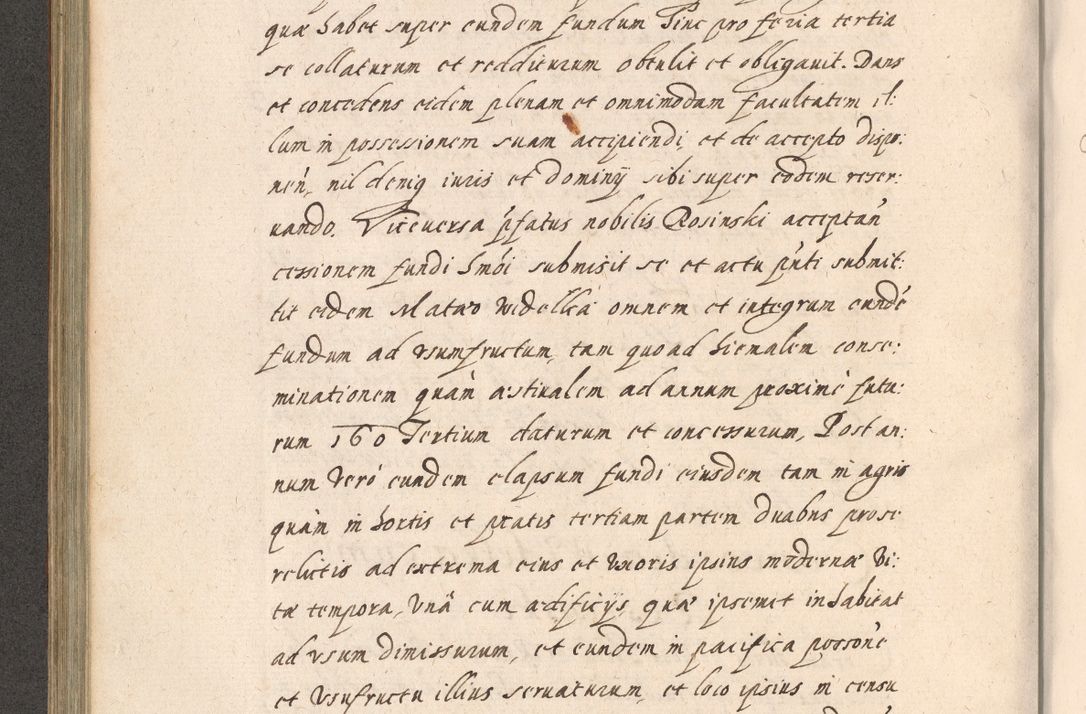 quæ habet super eundem fundum Sinc pro feria tertia
se collaturum et redditurum obtulit et obligauit. Dans
et concedens eidem plenam et omnimodam facultatem il:
lum in possessionem suam accipiendi, et de accepto dispo:
nen̄, nil deniq iuris et dominÿ sibi super eodem reser:
uando. Viceuersa p̄fatus nobilis Rosinski acceptan̄
cessionem fundi hm̄oi submisit se et actu pn̄ti submit:
tit eidem Matæo Wedelka omnem et integrum eundē
fundum ad vsumfructum, tam quoad hiemalem conse:
minationem quàm æstiualem ad annum proximè futu:
rum 160 Tertium daturum et concessurum, Post an:
num verò eundem elapsum fundi eiusdem tam in agris
quàm in hortis et pratis tertiam partem duabus pro se
relictis ad extrema eius et vxoris ipsius modernæ vi:
tæ tempora, vnā cum ædificijs, quæ ipsemet inhabitat
ad vsum dimissurum, et eundem in pacifica possōne
et vsufructu illius seruaturum, et loco ipsius in censu